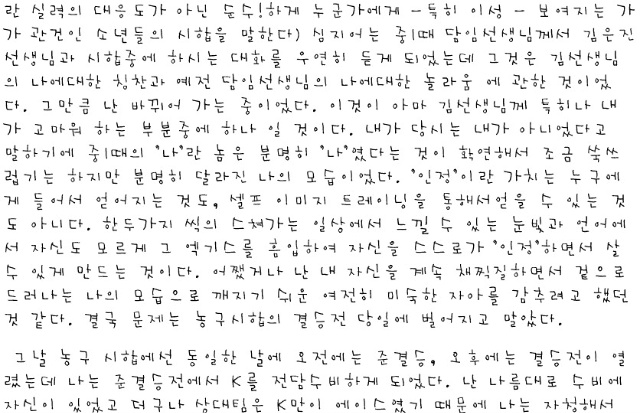 란 실력의 대응도가 아닌 순수!하게 누군가에게 -특히 이성- 보여지는 가
가 관건인 소년들의 시합을 말한다) 심지어는 중1때 담임선생님께서 김은진
선생님과 시합중에 하시는 대화를 우연히 듣게 되었는데 그것은 김선생님
의 나에대한 칭찬과 예전 담임선생님의 나에대한 놀라움 에 관한 것이었
다. 그만큼 난 바뀌어 가는 중이었다. 이것이 아마 김선생님께 특히나 내
가 고마워 하는 부분중에 하나 일 것이다. 내가 당시는 내가 아니었다고
말하기에 중1때의 "나"란 놈은 분명히 "나"였다는 것이 확연해서 조금 쑥쓰
럽기는 하지만 분명히 달라진 나의 모습이었다. "인정"이란 가치는 누구에
게 들어서 얻어지는 것도, 셀프 이미지 트레이닝을 통해서얻을 수 있는 것
도 아니다. 한두가지 씩의 스쳐가는 일상에서 느낄 수 있는 눈빛과 언어에
서 자신도 모르게 그 엑기스를 흡입하여 자신을 스스로가 "인정"하면서 살
수 있게 만드는 것이다. 어쨌거나 난 내 자신을 계속 채찍질하면서 겉으로
드러나는 나의 모습으로 깨지기 쉬운 여전히 미숙한 자아를 감추려고 했던
것 같다. 결국 문제는 농구시합의 결승전 당일에 벌어지고 말았다.
그날 농구 시합에선 동일한 날에 오전에는 준결승, 오후에는 결승전이 열
렸는데 나는 준결승전에서 K를 전담수비하게 되었다. 난 나름대로 수비에
자신이 있었고 더구나 상대팀은 K만이 에이스였기 때문에 나는 자청해서